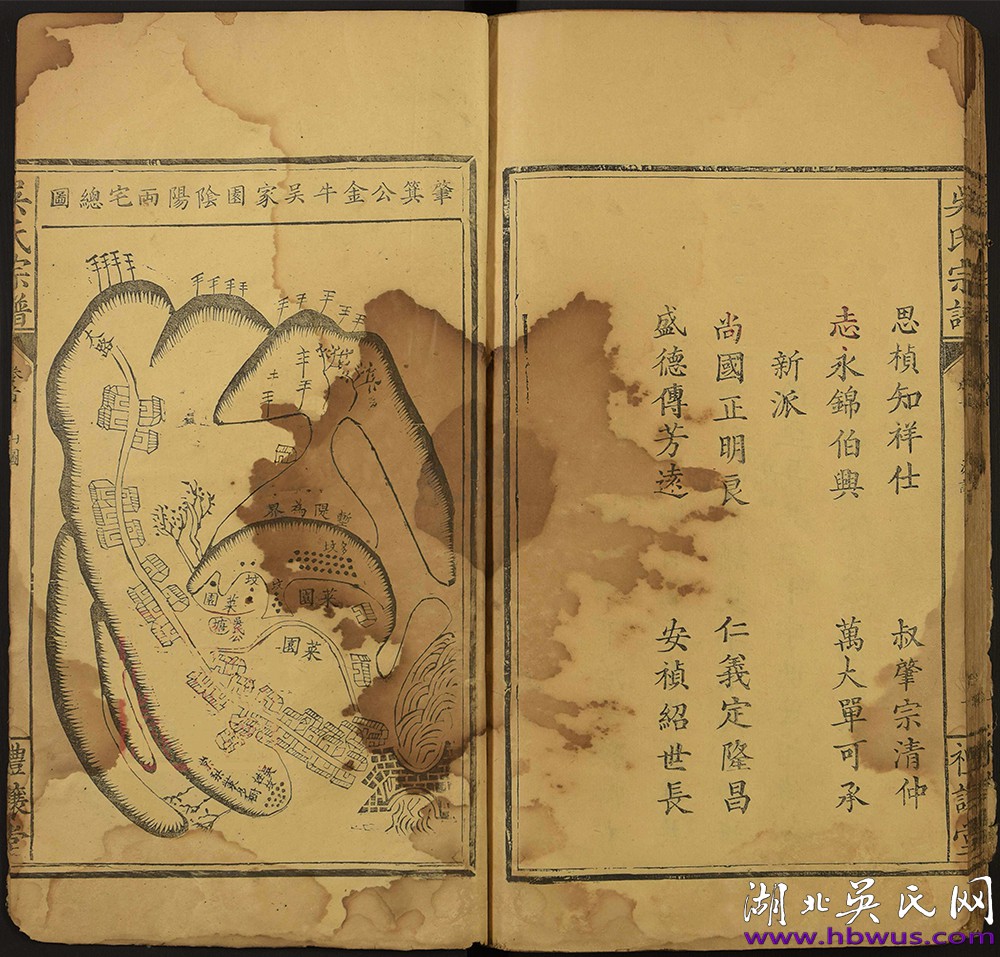 吳氏宗譜
思楨知祥仕 叔肇宗清仲
志永錦伯興 萬大單可承
新派
尚國正明良 仁義定隆昌
盛德傳芳遠 安禎紹世長
肇箕公金牛吴家園陰陽両宅總圖
暫隄為界
坟
坟
菜園
菜園
菜園
塘
吳氏宗譜
禮讓堂
湖北吴氏网
www.hbwus.com